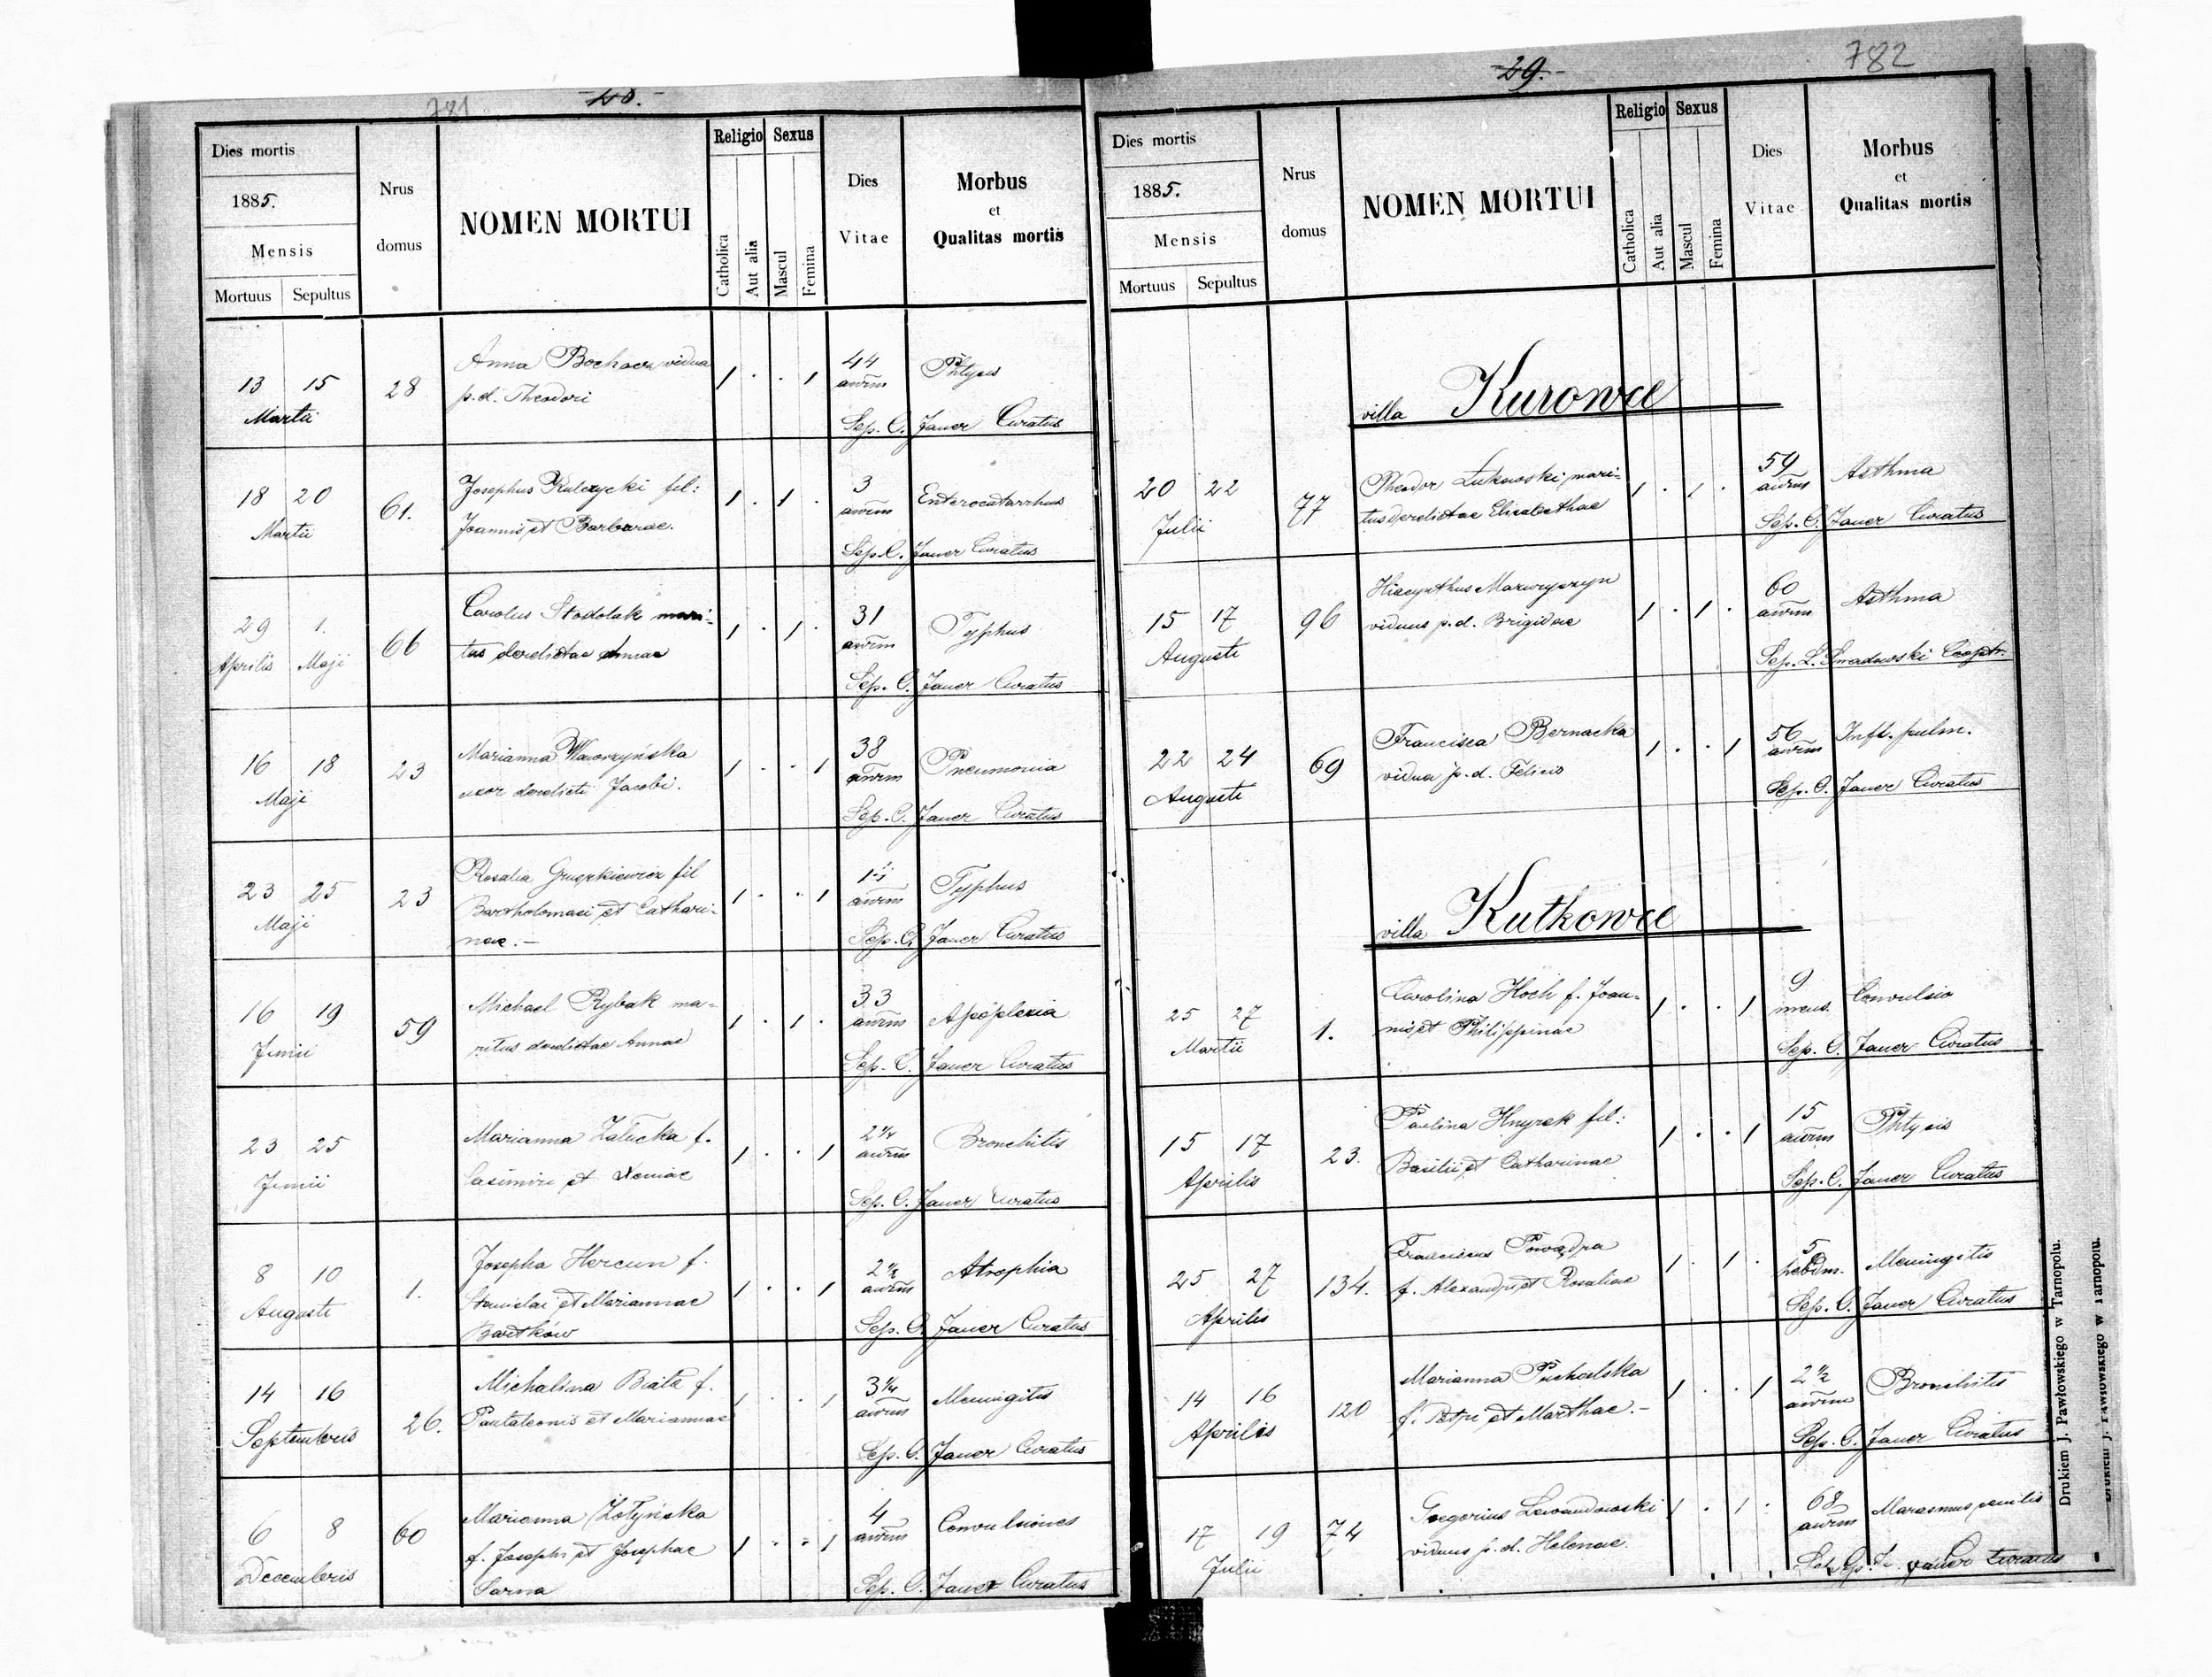 781
28.
Dies mortis
1885.
Mensis
Mortuus Sepultus
Nrus domus
NOMEN MORTUI
Religio
Catholica
Aut alia
Sexus
Mascul
Femina
Dies Vitae
Morbus
et
Qualitas mortis
13 15 28 Anna vidua 1 . . 1 44 Phtysis
Martii p.d. Theodori annm
Sep. C. Jauer Curatus
18 20 61. Josephus Kulczycki fil: 1 . 1 . 3 Enterocatarrhus
Martii Joannis et Barbarae. annm
Sep. C. Jauer Curatus
29 1. 66 Carolus Stodolak mari- 1 . 1 . 31 Typhus
Aprilis Maji tus derelictae Annae annm
Sep. C. Jauer Curatus
16 18 23 Marianna Wawrzyńska 1 . . 1 38 Pneumonia
Maji uxor derelicti Jacobi. annm
Sep. C. Jauer Curatus
23 25 23 Rosalia fil 1 . . 1 Typhus
Maji Bartholomaei et Cathari- annm
nae. -
Sep. C. Jauer Curatus
16 19 59 Michael Rybak ma- 1 . 1 . 33 Apoplexia
Junii ritus derelictae Annae annm
Sep. C. Jauer Curatus
23 25 Marianna Załucka f. 1 . . 1 Bronchitis
Junii Casimiri et Xeniae annm
Sep. C. Jauer Curatus
8 10 1. Josepha Hercun f. 1 . . 1 2½ Atrophia
Augusti Stanislai et Mariannae annm
Bartków
Sep. C. Jauer Curatus
14 16 26. Michalina Biała f. 1 . . 1 3¼ Meningitis
Septembris Pantaleonis et Mariannae annm
Sep. C. Jauer Curatus
6 8 60 Marianna Żołyńska 1 . . 1 4 Convulsiones
Decembris f. Josephi et Josephae annm
Sarna
Sep. C. Jauer Curatus
782
29.
Dies mortis
1885.
Mensis
Mortuus Sepultus
Nrus domus
NOMEN MORTUI
Religio
Catholica
Aut alia
Sexus
Mascul
Femina
Dies Vitae
Morbus
et
Qualitas mortis
villa Kurowce
20 22 77 Theodor Łukowski mari- 1 . 1 . 59 Asthma
Julii tus derelictae Elisabethae annm
Sep. C. Jauer Curatus
15 17 96 Hiacynthus 1 . 1 . 60 Asthma
Augusti viduus p.d. Brigidae annm
Sep. L. Cooptr.
22 24 69 Francisca Bernacka 1 . . 1 56 Infl. pulm.
Augusti vidua p.d. Felicis annm
Sep. C. Jauer Curatus
villa Kutkowce
25 27 1. Carolina Hoch f. Joan- 1 . . 1 9 Convulsio
Martii nis et Philippinae mens.
Sep. C. Jauer Curatus
15 17 23. Paulina Hnyrek fil: 1 . . 1 15 Phtysis
Aprilis Basilii et Catharinae annm
Sep. C. Jauer Curatus
25 27 134. Franciscus Powądra 1 . 1 . 5 Meningitis
Aprilis f. Alexandri et Rosaliae hebdm.
Sep. C. Jauer Curatus
14 16 120 Marianna Puchalska 1 . . 1 2½ Bronchitis
Aprilis f. Petri et Marthae. - annm
Sep. C. Jauer Curatus
17 19 74 Gregorius Lewandowski 1 . 1 . 68 Marasmus senilis
Julii viduus p.d. Helenae. annm
Jauer Curatus
Drukiem J. Pawłowskiego w Tarnopolu.
Drukiem J. Pawłowskiego w Tarnopolu.